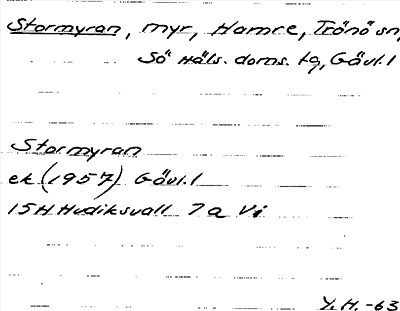 Stormyran, myr, Hamre, Trönö sn,
Sö Häls. doms. tg, Gävl. l
Stormyran
ek (1957) Gävl. l
15H Hudiksvall 7a Vi
Y. H. -63